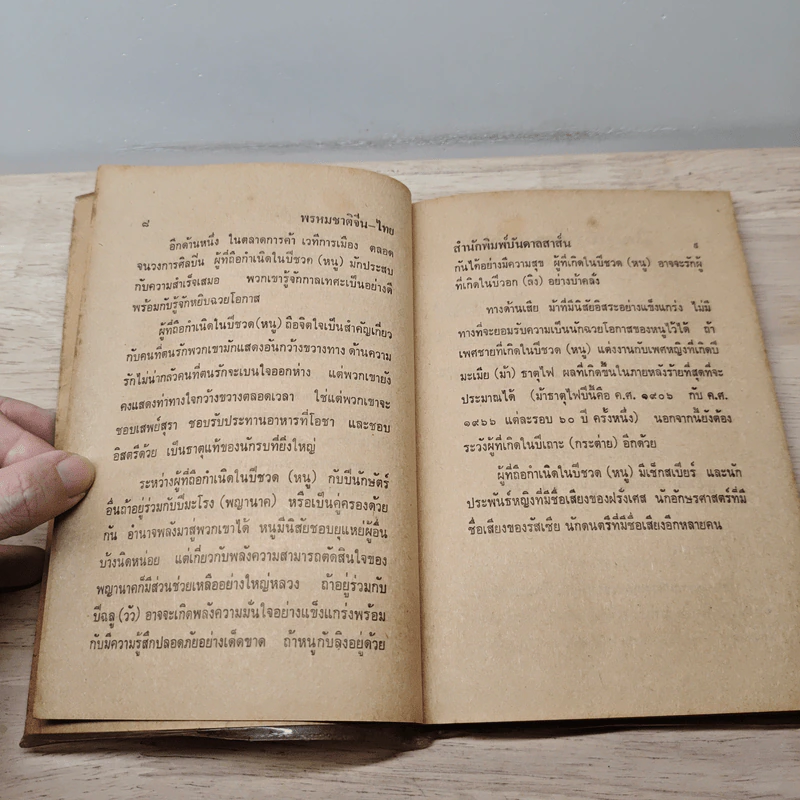 ๘ พรหมชาติจีน–ไทย
อีกด้านหนึ่ง ในตลาดการค้า เวทีการเมือง ตลอด
จนวงการศิลปิน ผู้ที่ถือกำเนิดในปีชวด (หนู) มักประสบ
กับความสำเร็จเสมอ พวกเขารู้จักกาลเทศะเป็นอย่างดี
พร้อมกับรู้จักหยิบฉวยโอกาส
ผู้ที่ถือกำเนิดในปีชวด (หนู) ถือจิตใจเป็นสำคัญเกี่ยว
กับคนที่ตนรักพวกเขามักแสดงอันกว้างขวางทาง ด้านความ
รักไม่น่ากลัวคนที่ตนรักจะเบนใจออกห่าง แต่พวกเขายัง
คงแสดงท่าทางใจกว้างขวางตลอดเวลา ใช่แต่พวกเขาจะ
ชอบเสพย์สุรา ชอบรับประทานอาหารที่โอชา และชอบ
อิสตรีด้วย เป็นธาตุแท้ของนักรบที่ยิ่งใหญ่
ระหว่างผู้ที่ถือกำเนิดในปีชวด (หนู) กับปีนักษัตร์
อื่นถ้าอยู่ร่วมกับปีมะโรง (พญานาค) หรือเป็นคู่ครองด้วย
กัน อำนาจพลังมาสู่พวกเขาได้ หนูมีนิสัยชอบยุแหย่ผู้อื่น
บ้างนิดหน่อย แต่เกี่ยวกับพลังความสามารถตัดสินใจของ
พญานาคก็มีส่วนช่วยเหลืออย่างใหญ่หลวง ถ้าอยู่ร่วมกับ
ปีฉลู (วัว) อาจจะเกิดพลังความมั่นใจอย่างแข็งแกร่งพร้อม
กับมีความรู้สึกปลอดภัยอย่างเด็ดขาด ถ้าหนูกับลิงอยู่ด้วย
สำนักพิมพ์บันดาลสาส์น ๙
กันได้อย่างมีความสุข ผู้ที่เกิดในปีชวด (หนู) อาจจะรักผู้
ที่เกิดในปีวอก (ลิง) อย่างบ้าคลั่ง
ทางด้านเสีย ม้าที่มีนิสัยอิสระอย่างแข็งแกร่ง ไม่มี
ทางที่จะยอมรับความเป็นนักฉวยโอกาสของหนูไว้ได้ ถ้า
เพศชายที่เกิดในปีชวด (หนู) แต่งงานกับเพศหญิงที่เกิดปี
มะเมีย (ม้า) ธาตุไฟ ผลที่เกิดขึ้นในภายหลังร้ายที่สุดที่จะ
ประมาณได้ (ม้าธาตุไฟปีนี้คือ ค.ศ. ๑๙๐๖ กับ ค.ศ.
๑๙๖๖ แต่ละรอบ ๖๐ ปี ครั้งหนึ่ง) นอกจากนี้ยังต้อง
ระวังผู้ที่เกิดในปีเถาะ (กระต่าย) อีกด้วย
ผู้ที่ถือกำเนิดในปีชวด (หนู) มีเช็กสเปียร์ และนัก
ประพันธ์หญิงที่มีชื่อเสียงของฝรั่งเศส นักอักษรศาสตร์ที่มี
ชื่อเสียงของรัสเซีย นักดนตรีที่มีชื่อเสียงอีกหลายคน